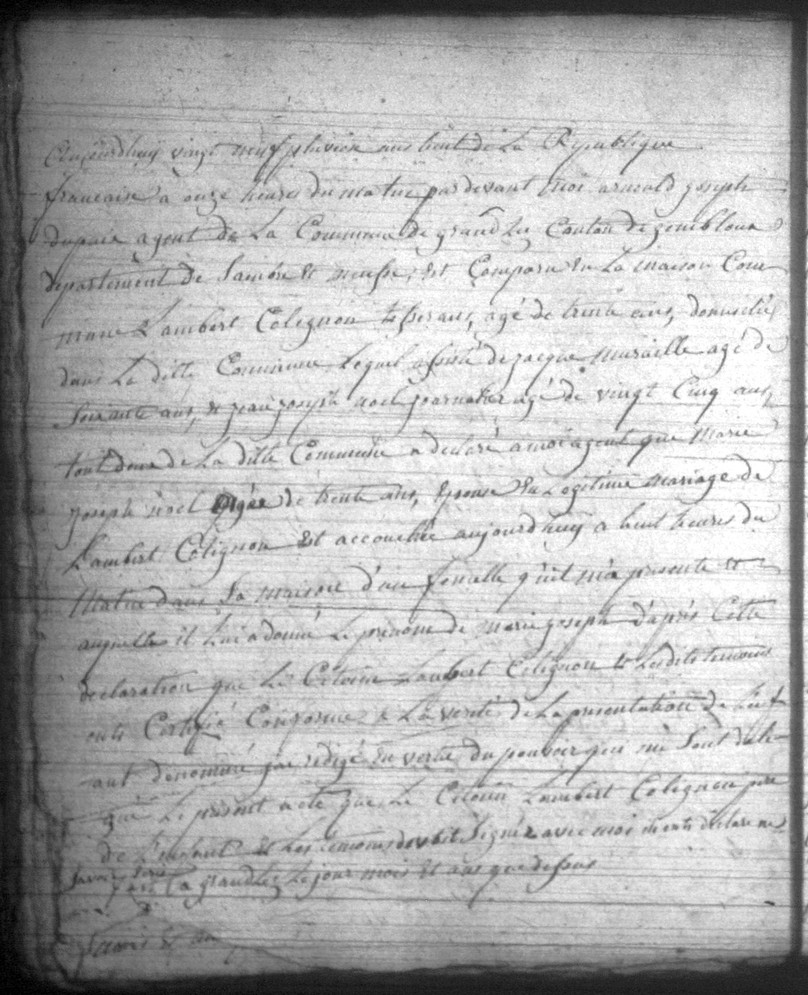 aujourdhuy vingt neuf pluviose ans huit de La Republique
francaise a onze heures du matin pardevant moi arnould joseph
agent de La Commune de grandlez Canton de gembloux
departement de Sambre et meuse, est Comparu en La maison Com
mune Lambert Colignon tisserans, agé de trente ans, domicilié
dans La ditte Commune Lequel assisté de jacque muraille agé de
soixante ans, et jean joseph noel journalier agé de vingt Cinq ans,
tout deux de La ditte Commune a declaré a moi agent que marie
joseph noel agée de trente ans, Epouse En Legitime mariage de
Lambert Colignon Est accouchée aujourdhuy a huit heures du
matin dans Sa maison d'une femelle qu'il m'a presente et
auquelle il lui a donné Le prénom de marie joseph d'après Cette
declaration que Le Citoien Lambert Colignon et Lesdits temoins
ont Certifié Conforme a La verité de La presentation de L'enf
ant denommé j'ai redigé En vertu du pouvoir qui me Sont dele
gué Le present acte que Le Citoien Lambert Colignon pere
de L'enfant et Les temoins Signé avec moi declare ne
savoir Ecrire fait a grandlez Le jour mois et ans que dessus